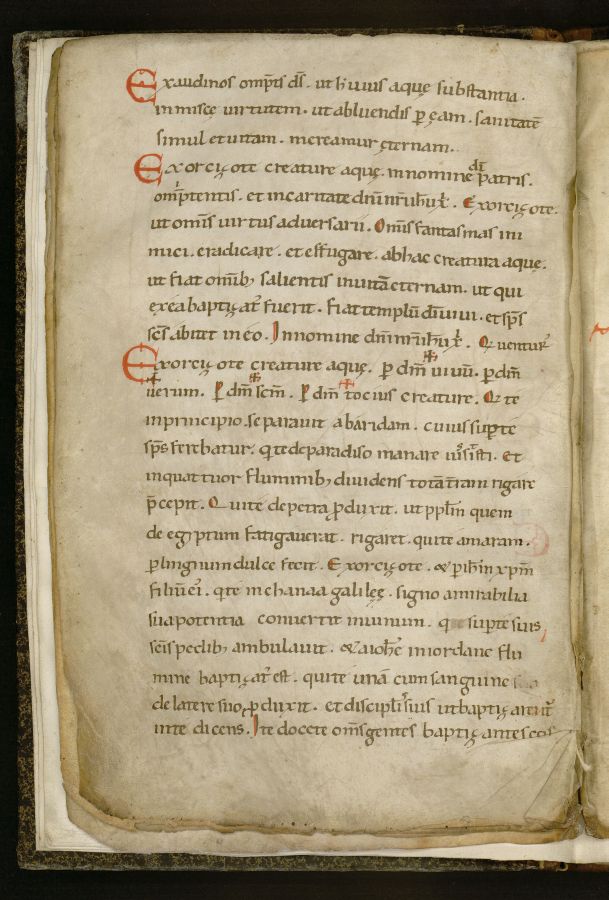 Exaudi nos omp̄s d̄s . ut h̄uius aquę substantia .
in misce uirtutem . ut abluendis p̄ eam . sanitatē
simul et uitam . mereamur ęternam .
Exorcizo te creature aquę . in nomine dī patris .
omīptentis . et in caritate dn̄i nr̄i ih̄u xp̄i . Exorcizo te .
ut om̄is uirtus aduersarii . Om̄is fantasmas ini
mici . eradicare . et effugare . ab hac creatura aquę .
ut fiat om̄ib; salientis in uitā eternam . ut qui
ex ea baptizat᷒ fuerit . fiat templū dī uiui . et sp̄s
sc̄s abitet in eo . In nomine dn̄i nr̄i ih̄u xp̄i . Qr uentur᷒
Exorcizo te creature aquę . p̄ dm̄ uiuū . p̄ dm̄
uerum . P̄ dm̄ sc̄m . P̄ dm̄ tocius creature . Qr te
in principio . separauit ab aridam . cuius sup̄ te
sp̄s ferebatur . q te de paradiso manare iussisti . Et
in quattuor fluminib; diuidens totā tr̄am rigare
p̄cepit . Qui te de petra ꝓduxit . ut pp̄lm̄ quem
de egyptum fatigauerat . rigaret . qui te amaram .
p̄ lingnum dulce fecit . Exorcizo te . & p̄ ih̄m xp̄m
filiū ei᷒ . q te in chanaa galileę . signo amirabilia
sua potentia conuertit in uinum . q sup̄ te suis
sēis pedib; ambulauit . & a ioh̄e in iordane flu
mine baptizat᷒ est . qui te unā cum sanguine
de latere suo ꝓduxit . et discipl̄is suis ut baptizarent᷒
in te dicens . Ite docete om̄s gentes baptizantes eos